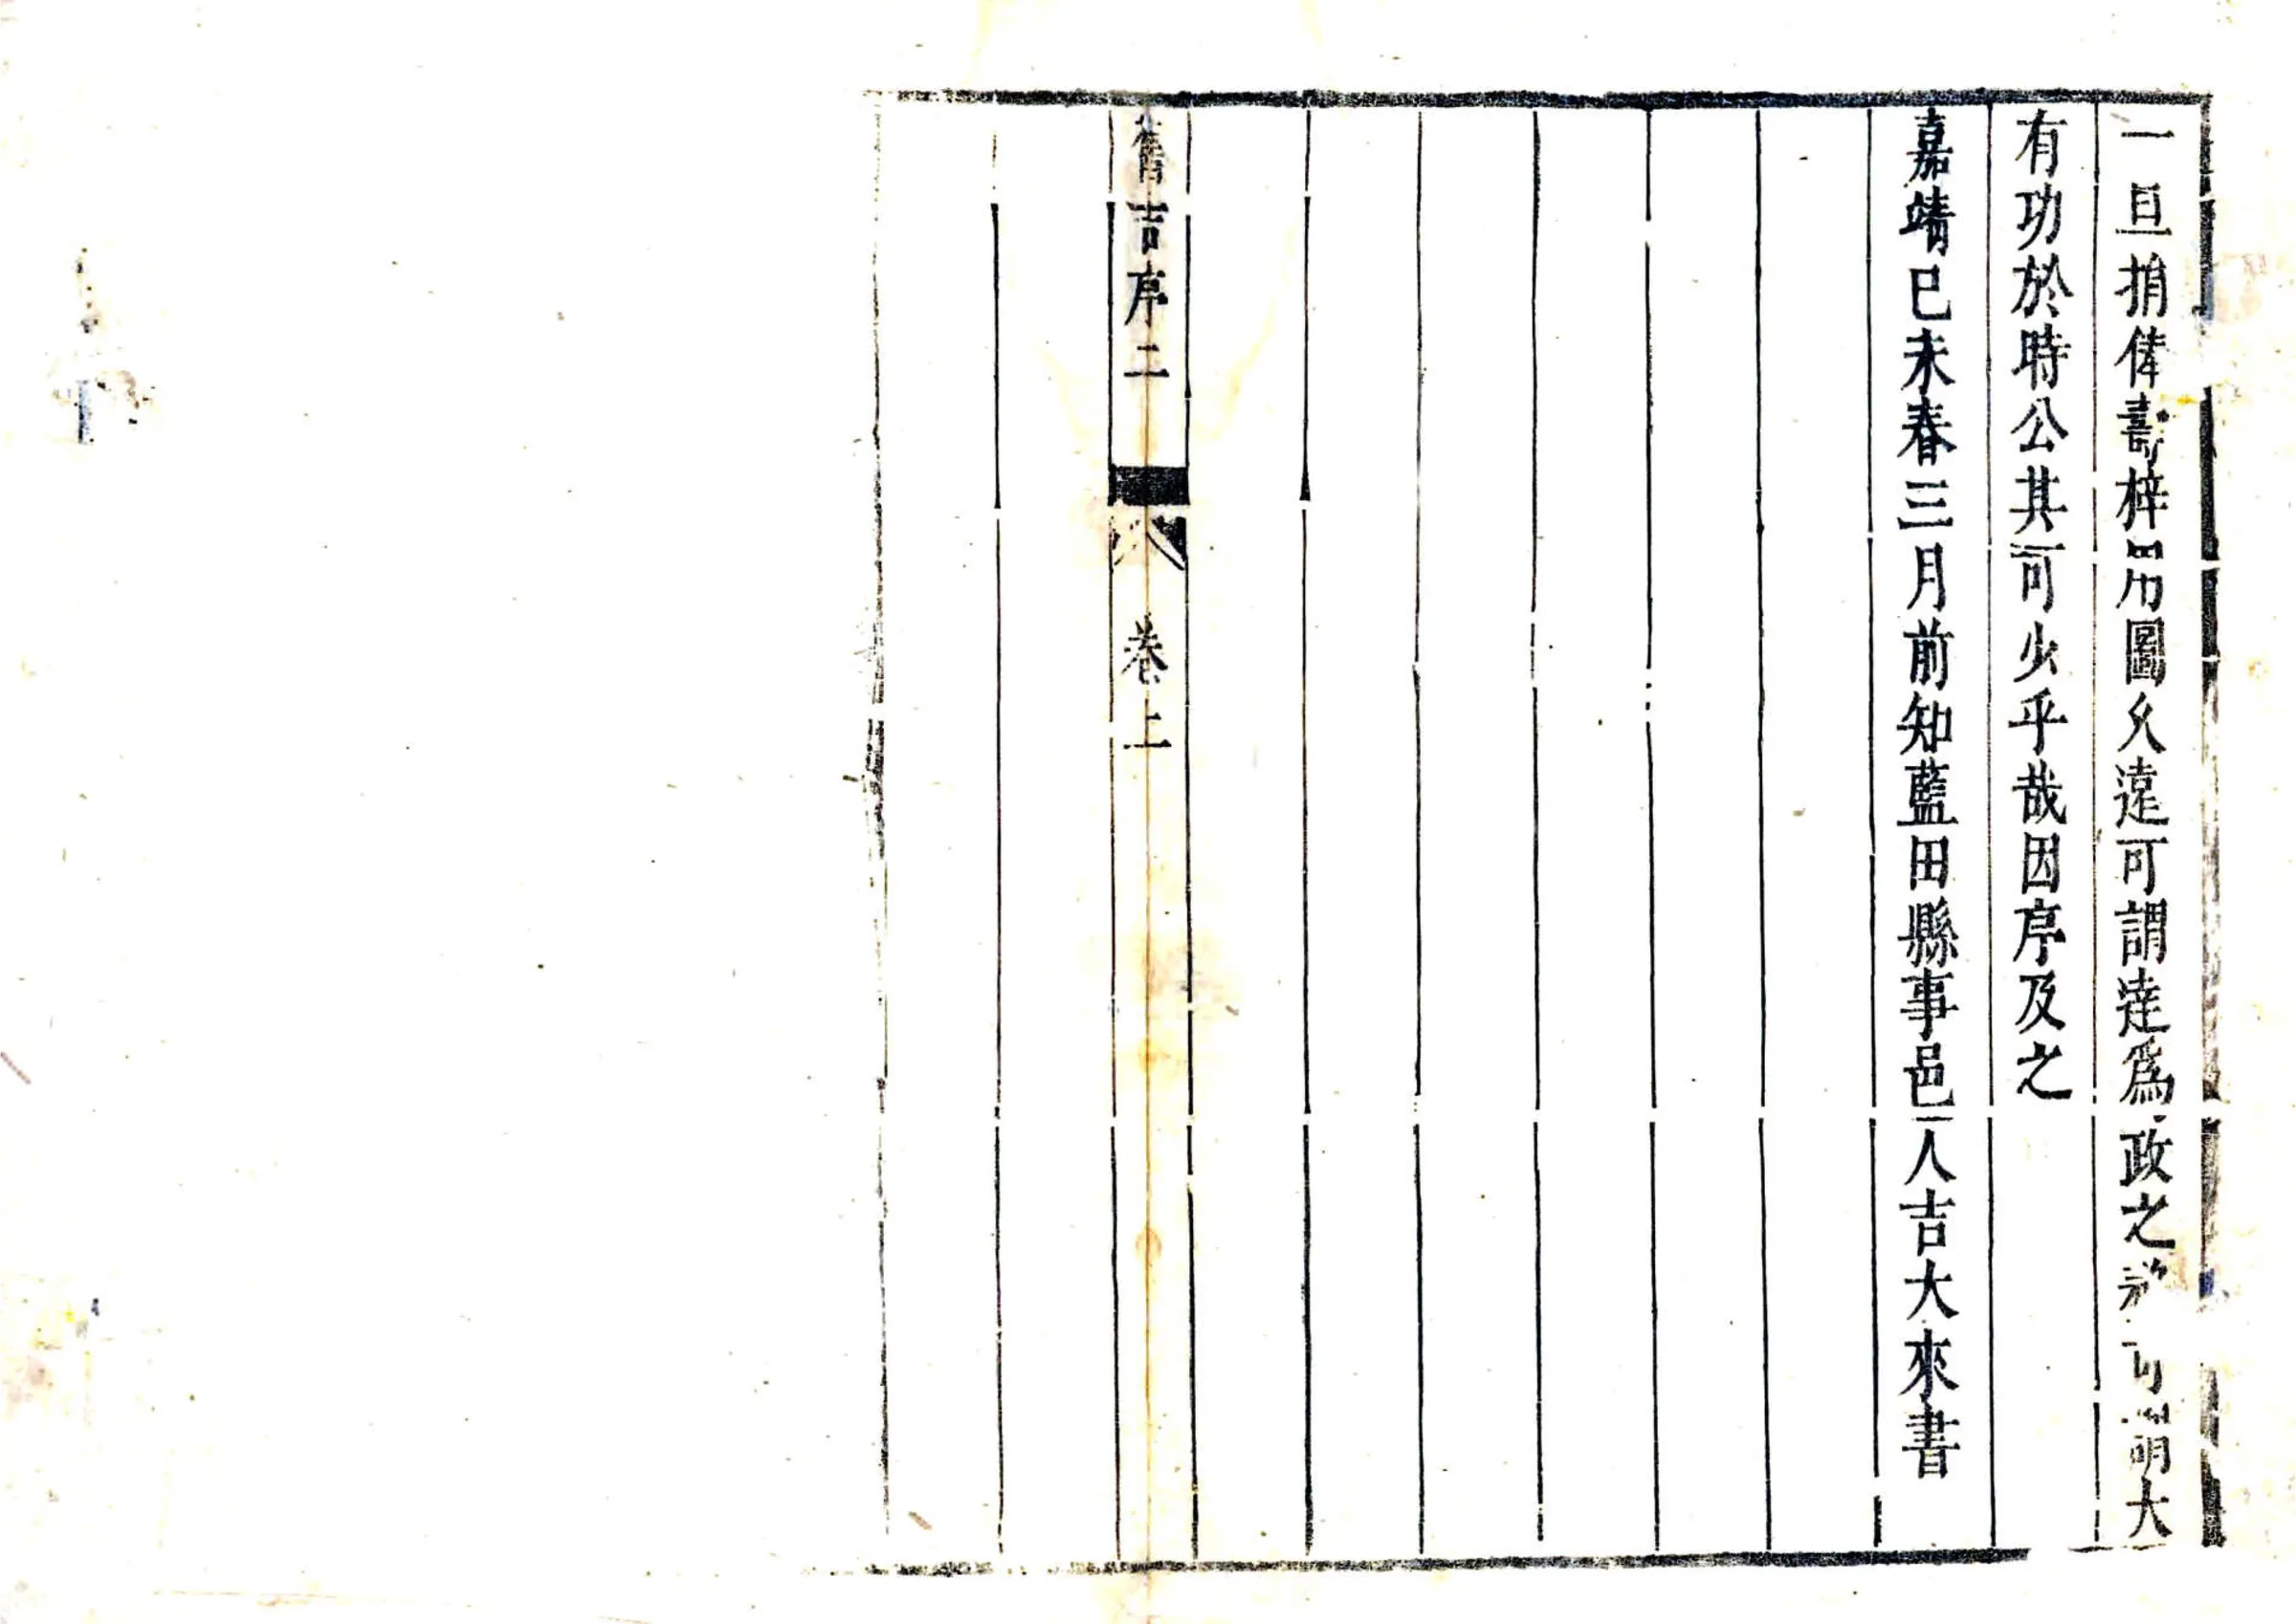 一旦捐俸壽梓用圖久遠可謂達為政之明大
有功於時公其可少乎哉因序及之
嘉靖己未春三月前知藍田縣事邑人吉大來書
舊吉序二
卷上